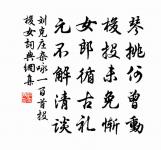 琴挑何曾動
梭投未免慚
女郎循古礼
元不解清谈
刘克庄杂咏一百首投
梭女詞典網集